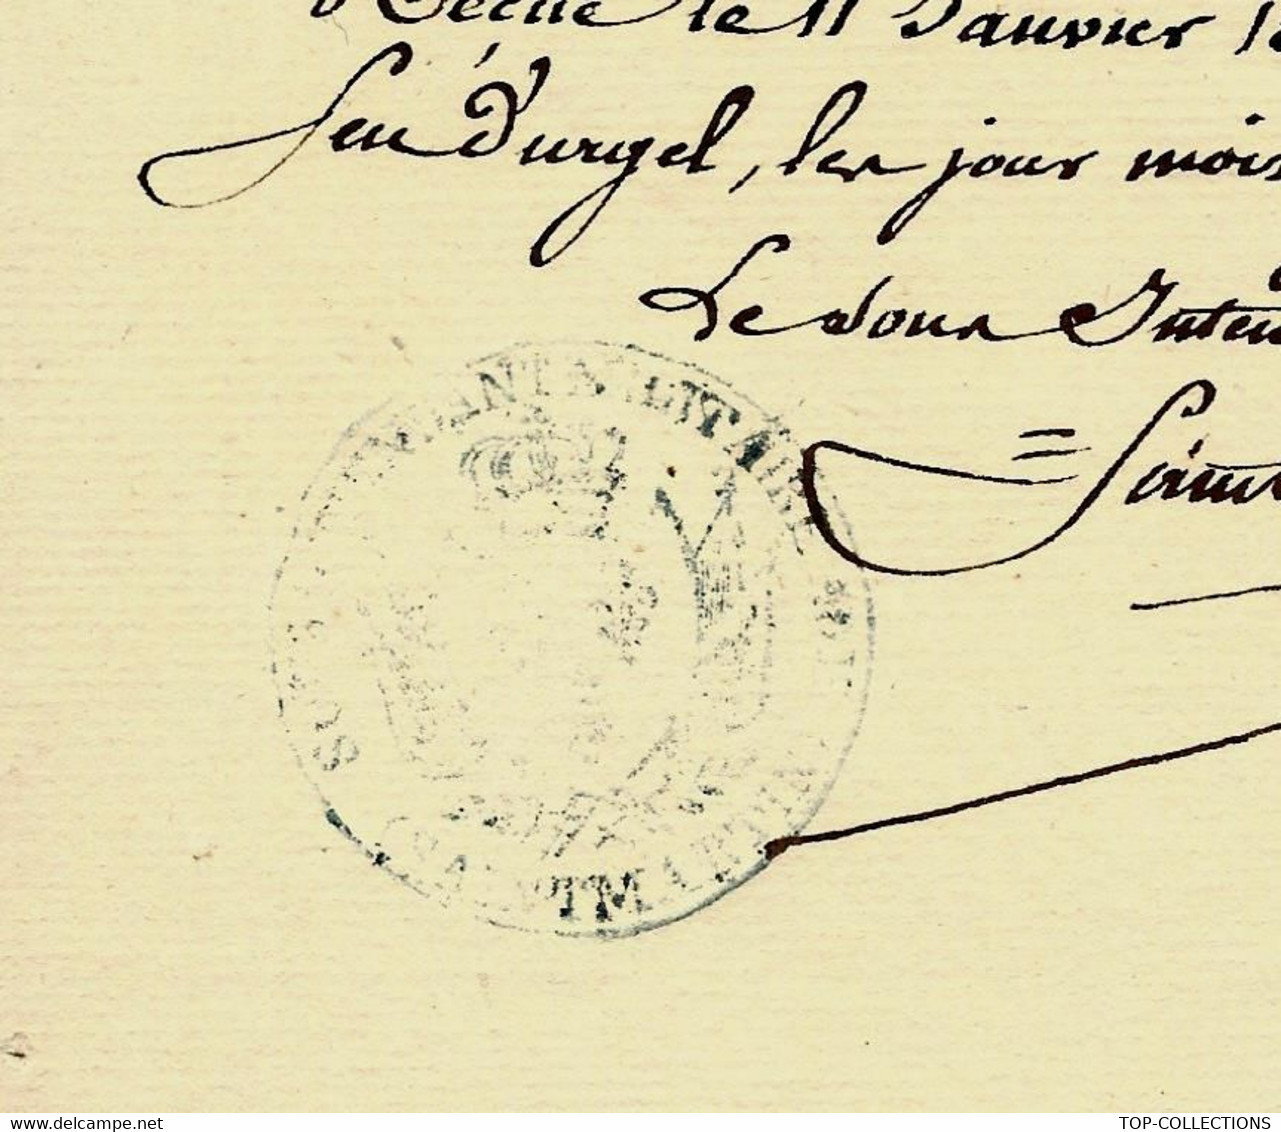 le 11 Janvier 18
Seu d'urgel, les jour mois
Le Sous Inten
= Saim
SOUS INTENDANT MILITAIRE
(SAINT MARTIN)
www.delcampe.net
TOP-COLLECTIONS